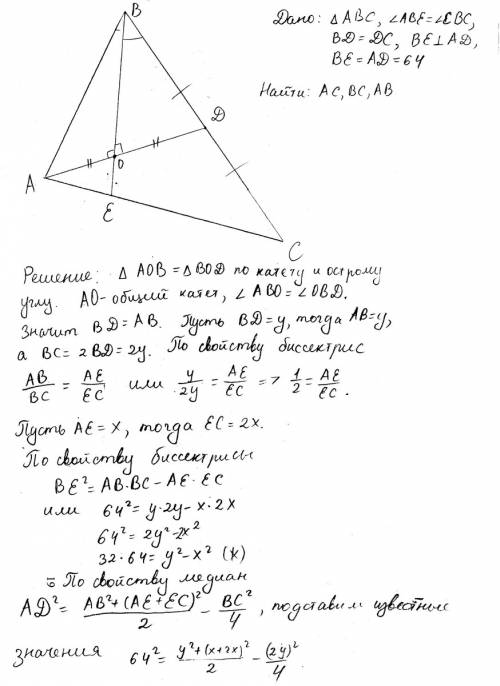 B
D
O
A
E
C
Дано: △ABC, ∠ABE=∠EBC,
BD=DC, BE⊥AD,
BE=AD=64
Найти: AC, BC, AB
Решение: △AOB=△BOD по катету и острому
углу. AO-общий катет, ∠ABO=∠OBD.
Значит BD=AB. Пусть BD=y, тогда AB=y,
а BC=2BD=2y. По свойству биссектрис
AB/BC = AE/EC или y/2y = AE/EC => 1/2 = AE/EC.
Пусть AE=x, тогда EC=2x.
По свойству биссектрисы
BE²=AB·BC-AE·EC
или 64²=y·2y-x·2x
64²=2y²-2x²
32·64=y²-x² (*)
По свойству медиан
AD²= (AB²+(AE+EC)²)/2 - BC²/4, подставим известные
значения 64²= (y²+(x+2x)²)/2 - (2y)²/4.